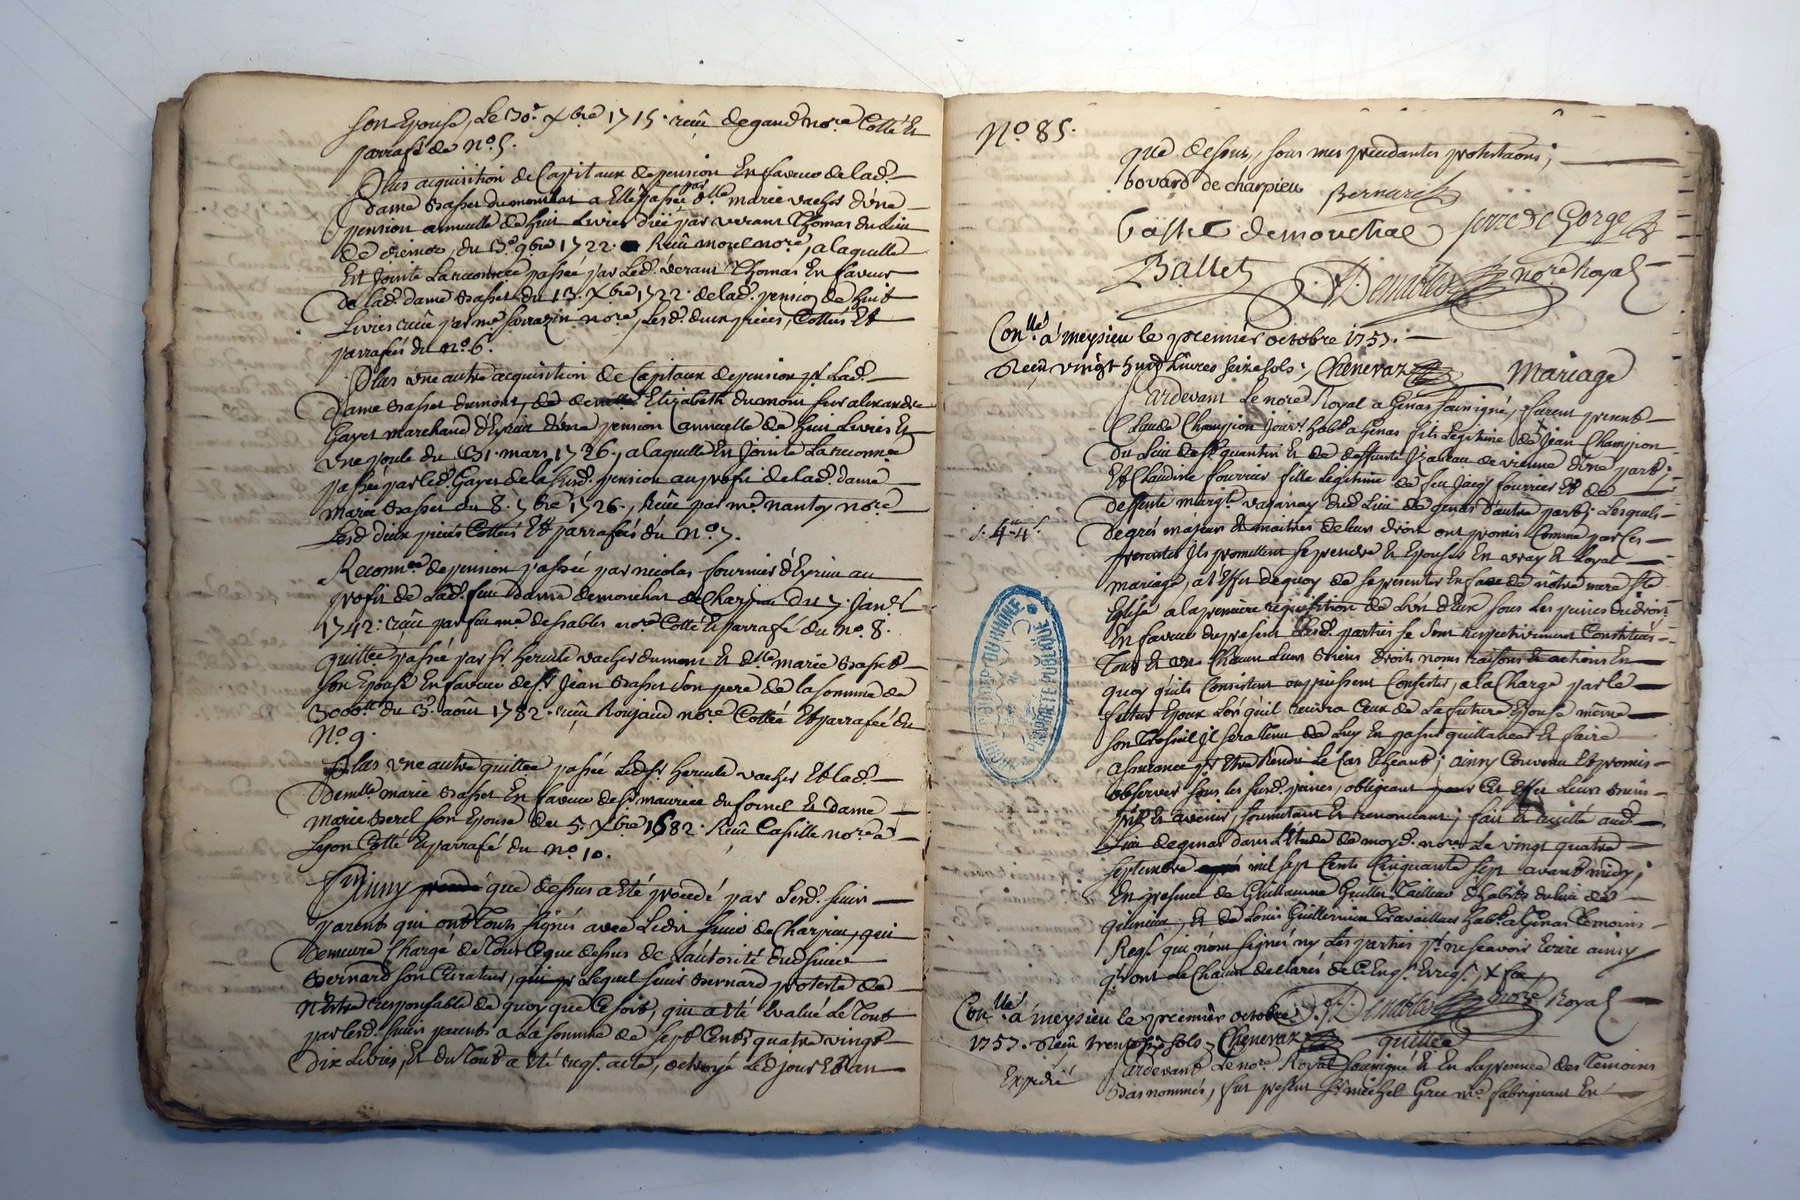 son Epouse, Le 30e. xbre 1715. reçû Degand Nore Cotté Et
parrafé du No. 5.
Plus acquisition de Capitaux de pension En faveur de lad.
Dame Basset Dumonchat a Elle passée par dlle marie vacher d'une
pension annuelle de huit Livres düe par verant Thomas du Lieu
de du 3e. 9bre 1722. Reçû morel nore, a laquelle
Est Jointe La reconnce passée par Led. verant Thomas En faveur
de lad. dame Basset du 13. xbre 1722. de lad. pension de huit
Livres reçûe par me sarrazin nore, Lesd. deux pieces, Cottées Et
parrafées du no. 6.
Plus une autre acquisition de Capitaux de pension pr Lad.
Dame Basset dumont, de Elizabeth Dumont sur alexandre
Gayet marchand d'Eyrieu d'une pension annuelle de huit Livres Et
une poule du 31. mars 1726., a laquelle Est Jointe La reconnce
passée par led. Gayet de la susd. pension au profit de lad. dame
Marie Basset du 8. 7bre 1726., Reçûe par me nantoy nore
Lesd. deux pieces Cottées Et parrafées du No. 7.
Reconnce de pension passée par nicolas fournier d'Eyrieu au
profit de Lad. feüe Dame demonchat de Charpieu du 7. Janer.
1742. reçûe par feu me desrables nore Cotté Et parrafé du no. 8.
Quittce passée par sr. hercule vacher dumont Et dlle marie Basset
son Epouse En faveur de sr. Jean Basset son pere de la somme de
3000tt du 3. août 1782. reçûe Roujaud nore Cottée Et parrafée du
No. 9.
Plus une autre quittce passée Led. sr hercule vacher Et lad.
Demlle marie Basset En faveur de sr. maurice du fornel Et Dame
marie Berel son Epouse du 5. xbre 1682. Reçûe Casille nore a
Lyon Cotté Et parrafé du No. 10.
Et ainsy que dessus a eté procedé par Lesd. sieurs
parents qui ont Tous signés avec Ledit sieur de Charpieu, qui
Demeure Chargé de Tout Ce que dessus de L'autorité dud. sieur
Bernard son Curateur, Lequel sieur Bernard proteste de
N'être responsable de quoy que Ce soit, qui a eté Evalué Le Tout
par lesd. sieurs parents a La somme de sept Cents quatre vingt
Dix Livres, Et du Tout a eté reqs. acte, octroyé Led. jour Et an
No 85.
que dessus, sous mes precedantes protestaons;
bovard de charpieu Bernard
Basset demonchat serre de Gorge
Ballet Desrables nore Royal
Conllé a meysieu le premier octobre 1757.
Reçu vingt huit livres seize sols; Chenevaz
Mariage
Pardevant Le nore Royal a Genas soussigné, furent presents
Claude Champion Jourr. habt. a Genas fils Legitime de Jean Champion
du Lieu de st quentin Et de deffunte Izabeau de vienne d'une part;
Et Claudine fournier fille Legitime de feu Jacqs. fournier Et de
deffunte Margte. vaganay dud. Lieu de genas d'autre part; Lesquels
s. 4tt 4s.
Degrés majeurs Et maitres de leurs droits ont promis Comme par Ces
presentes Ils promettent se prendre Et Epouser En vray Et Loyal
mariage, a L'Effet de quoy de se presenter En face de nôtre mere Ste
Eglise a la premiere requisition de L'un d'Eux sous Les peines du droit
En faveur du present Lesd. parties se sont respectivement Constitués
Tous Et uns Chacun Leurs Biens droits noms raisons Et actions En
quoy qu'ils Consistent ou puissent Consister, a la Charge par le
futur Epoux Lors qu'il recevra Ceux de La future Epouse même
son Trousseau Il sera tenu de Luy En passer quittances Et faire
assurance pr Etre Rendu Le Cas Echeant; ainsy Convenu Et promis
observer sous les susd. peines, obligeant pour Cet Effet Leurs Biens
pnts Et avenir, soumettant Et renonceant; fait Et recité aud.
Lieu de genas dans L'Etude de moyd. nore. Le vingt quatre
septembre mil sept Cents Cinquante sept avant midy;
En presence de Guillaume Guillot Tailleur d'habits du lieu de
Et de Louis Guillermin Travailleur habt. a Genas Temoins
Reqs. qui n'ont signés ny Les parties pr. ne sçavoir Ecrire ainsy
qu'ont de Chacun declarés de Ce Enqs. Et reqs.
Desrables nore Royal
Conllé a meysieu le premier octobre
1757. Reçu trente six sols; Chenevaz
quittce
Expedié
Pardevant Le nore. Royal soussigné Et En La presence des Temoins
Bas nommés, fut present sr. michel Grec me fabriquant En
ARCHIVES DEP. DU RHÔNE
PROPRIÉTÉ PUBLIQUE